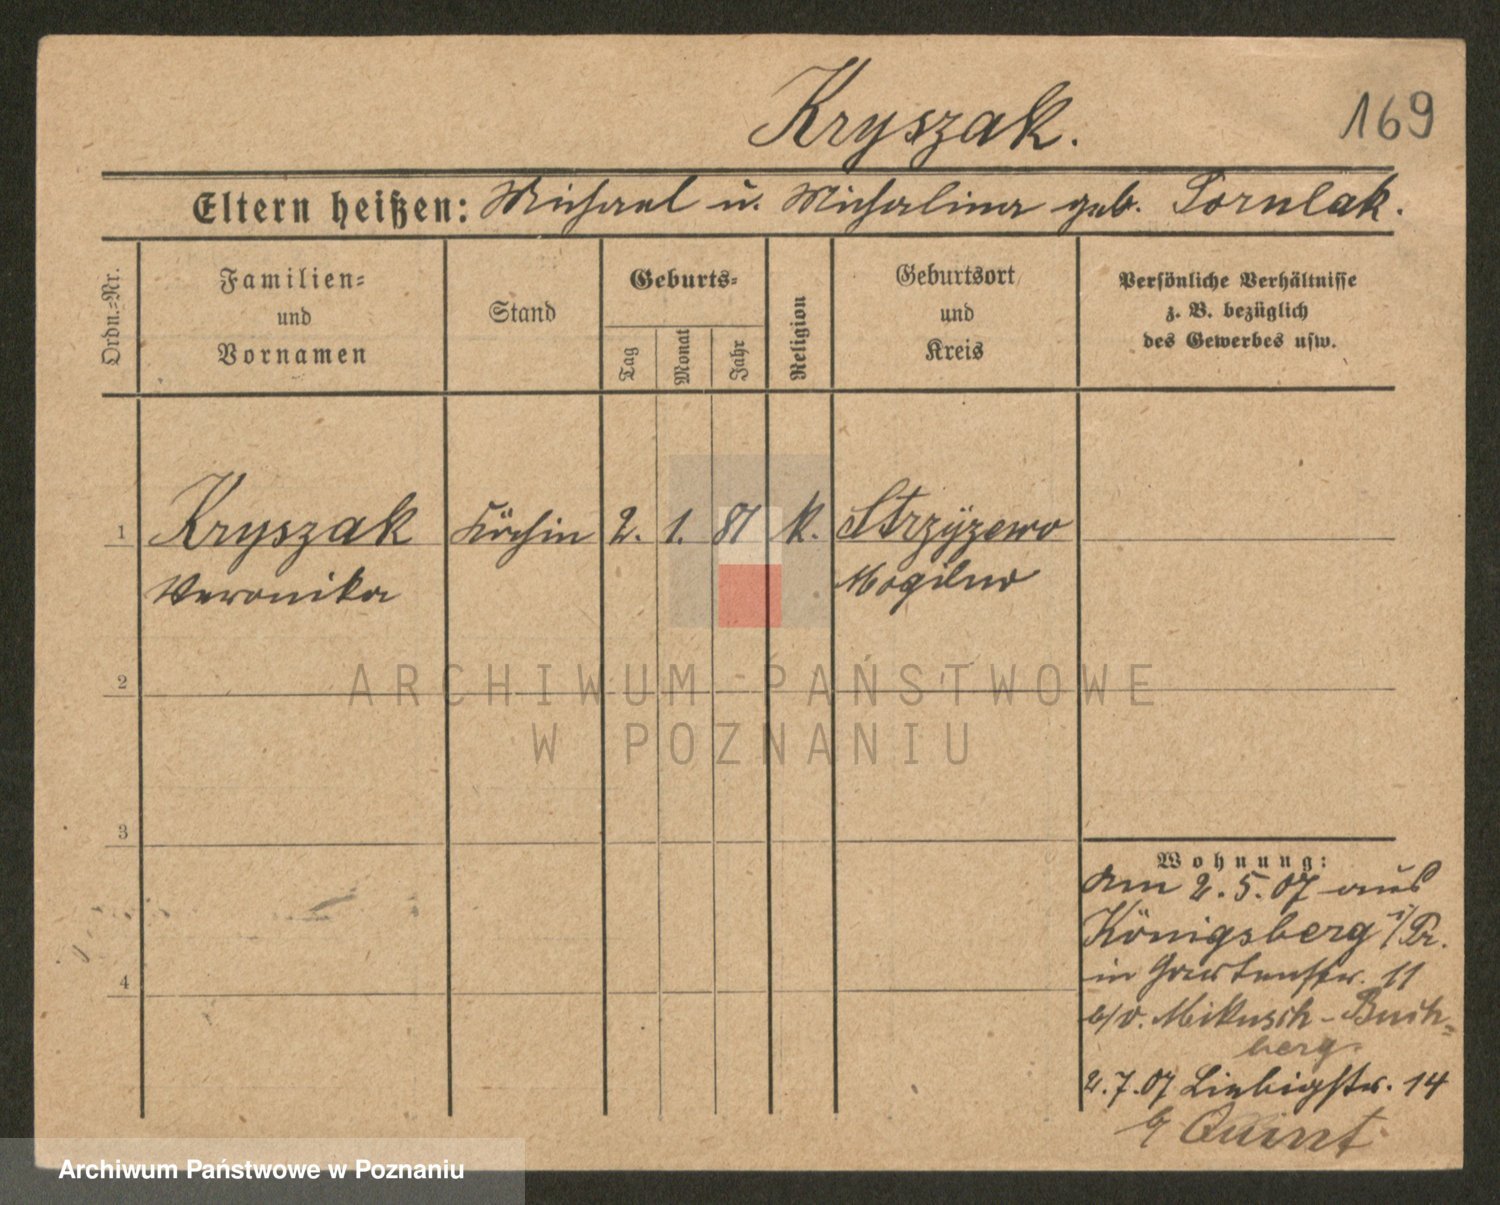 Kryszak.
169
Eltern heißen: Michael u. Michalina geb. Tornlak.
Ordn.-Nr.
Familien-
und
Vornamen
Stand
Geburts-
Tag
Monat
Jahr
Religion
Geburtsort
und
Kreis
Persönliche Verhältnisse
z. B. bezüglich
des Gewerbes usw.
1
Kryszak
Köchin
2.
1.
81
k.
Strzyżewo
Veronika
Mogilno
2
3
4
Wohnung:
am 2.5.07 aus
Königsberg i/Pr.
in Gartenstr. 11
b/v. Mikusch-Buch-
berg.
2.7.07 Liebigstr. 14
b/ Quint
ARCHIWUM PAŃSTWOWE
W POZNANIU
Archiwum Państwowe w Poznaniu